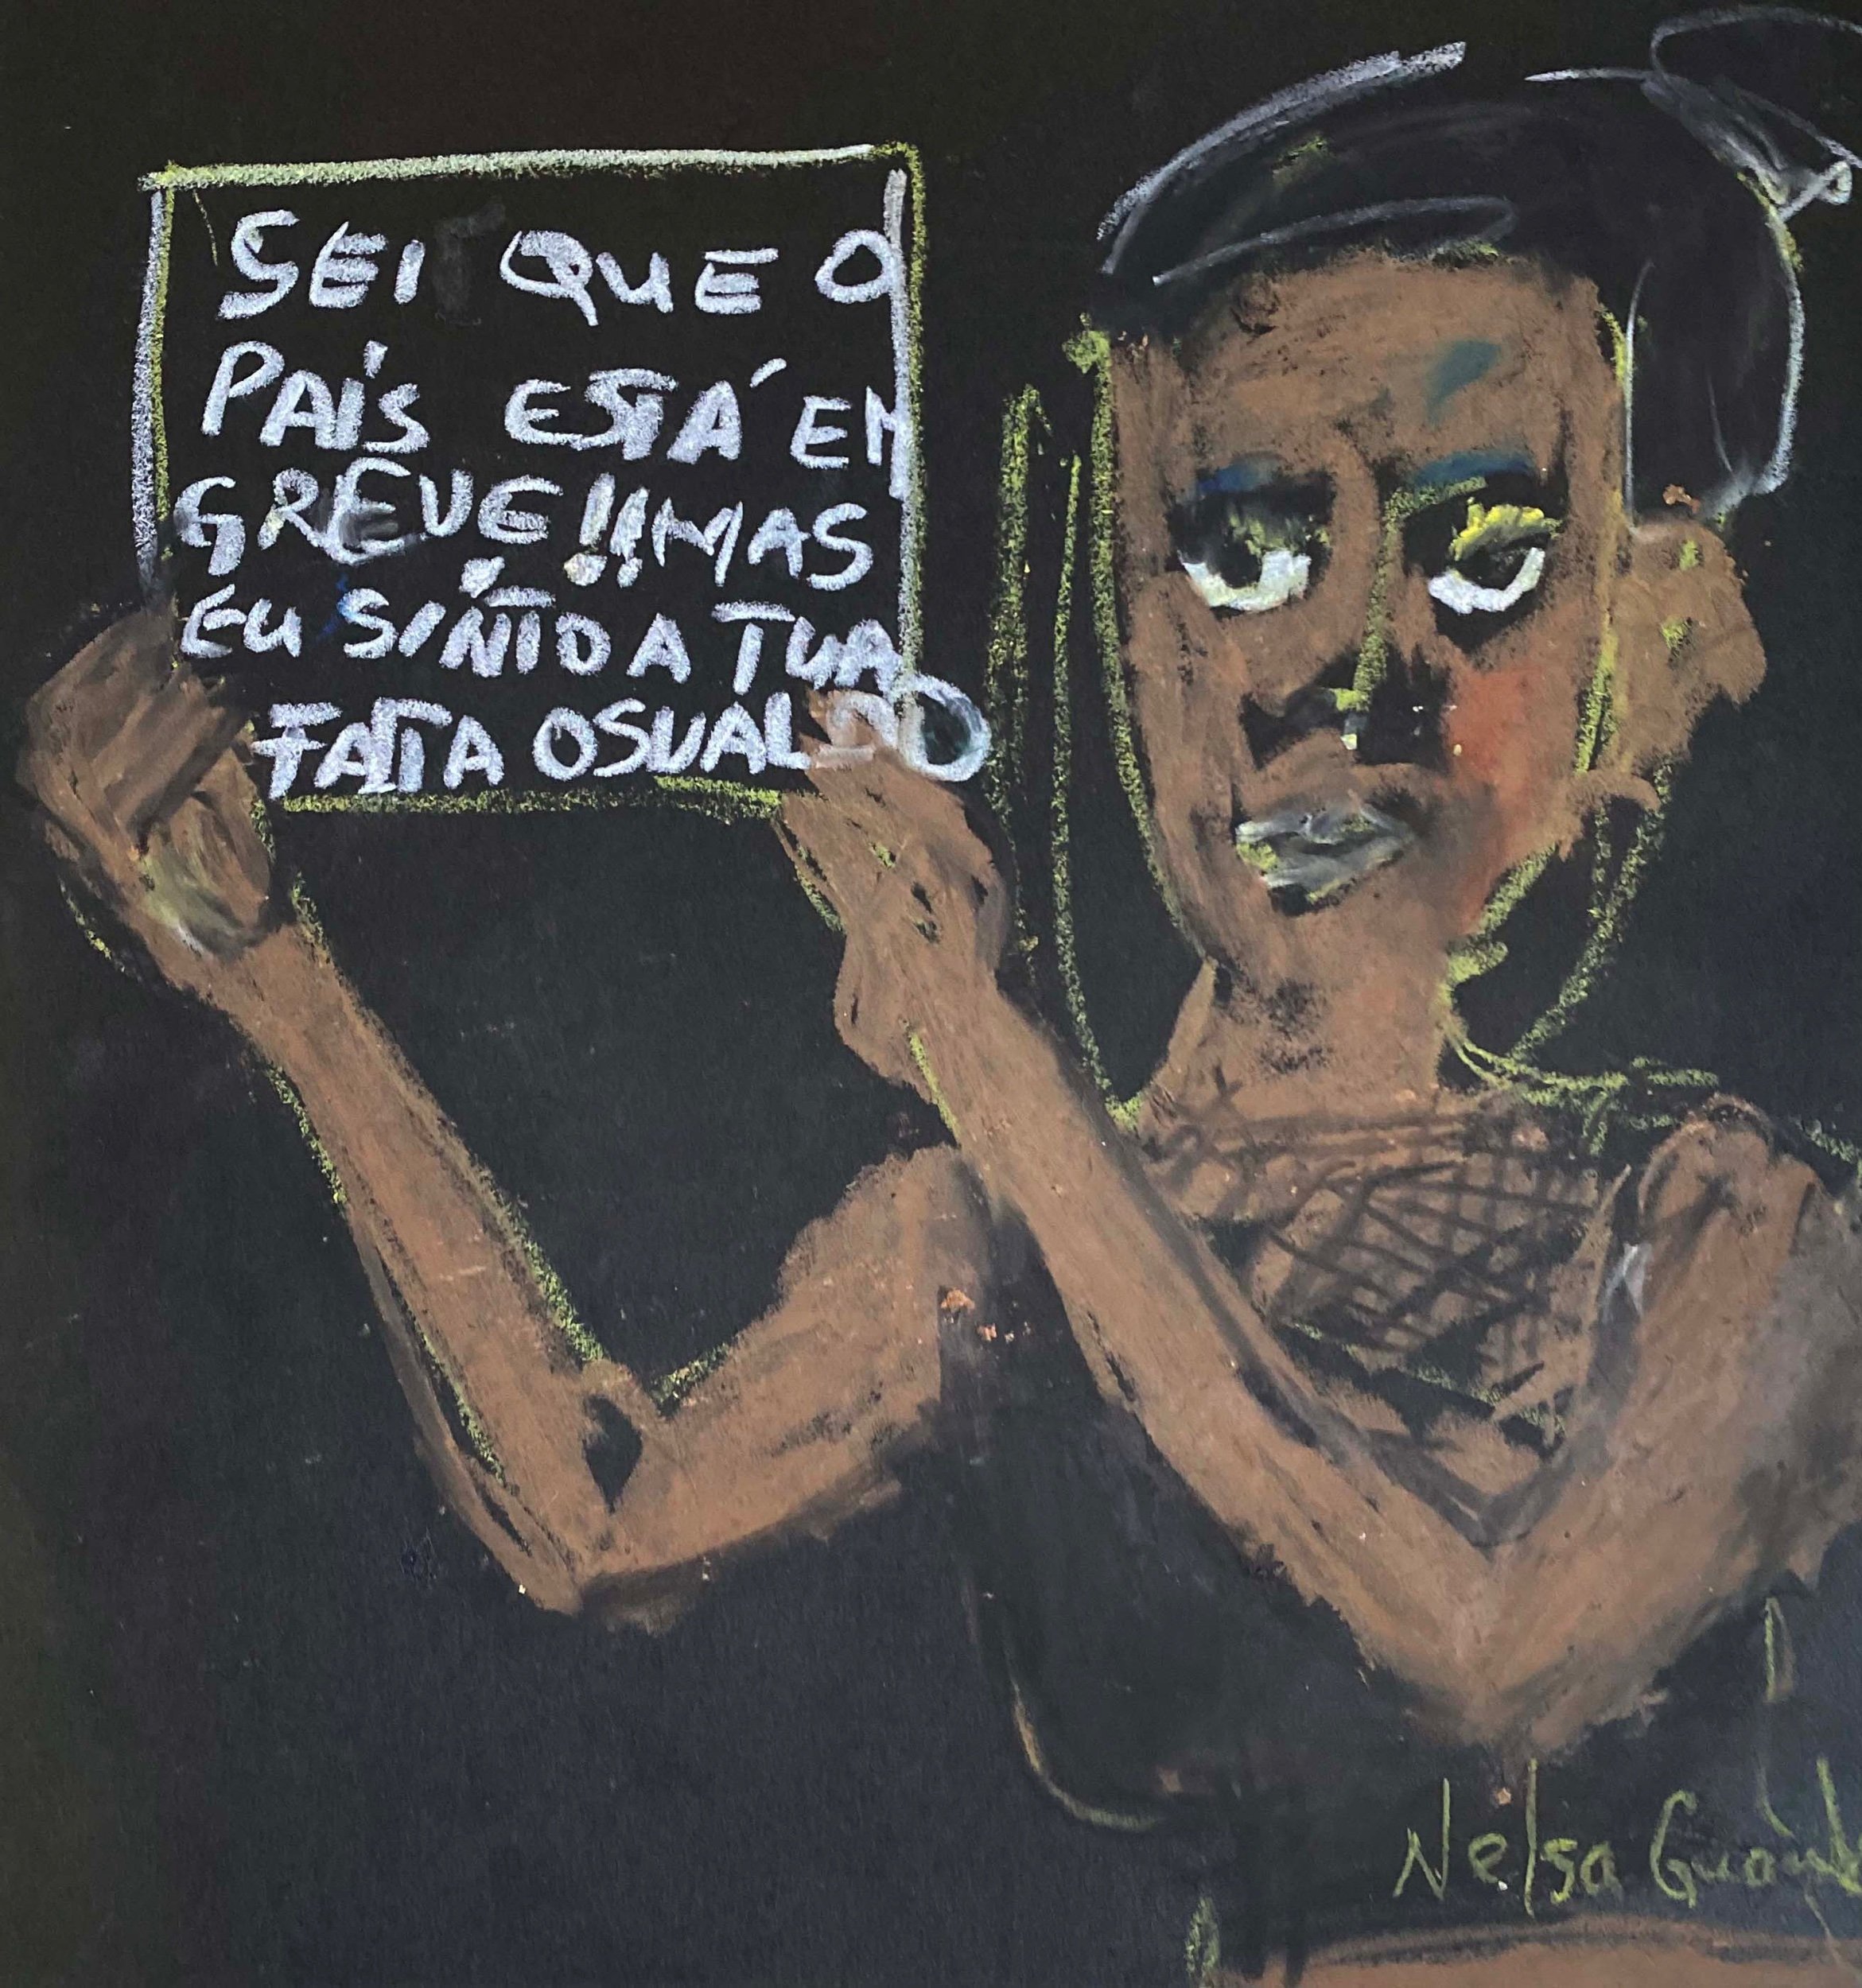 SEI QUE O
PAÍS ESTÁ EM
GREVE!!MAS
EU SINTO A TUA
FALTA OSVALDO
Nelsa